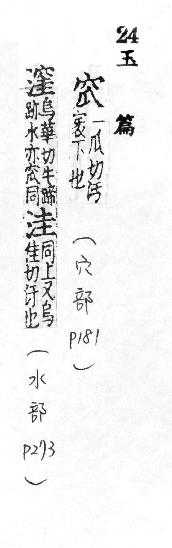 24 玉 篇
窊 一瓜切汚
衺下也
（穴部 p181）
窪 烏華切牛蹄
跡水亦窊同
洼 同上又烏
佳切汙也
（水部 p273）